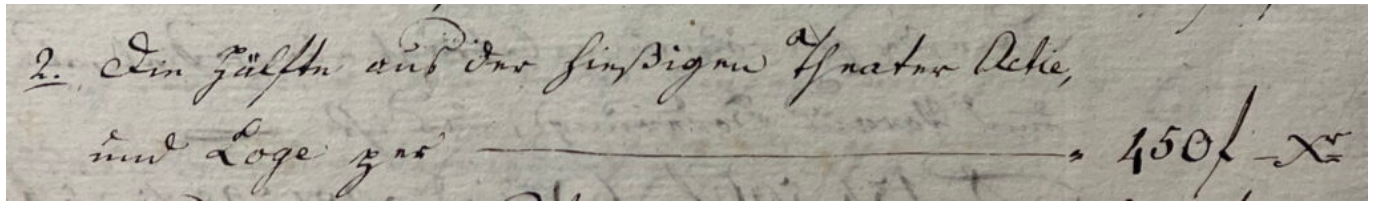 2. Die Hälfte aus der hießigen Theater Actie,
und Loge per — 450 f – Xr